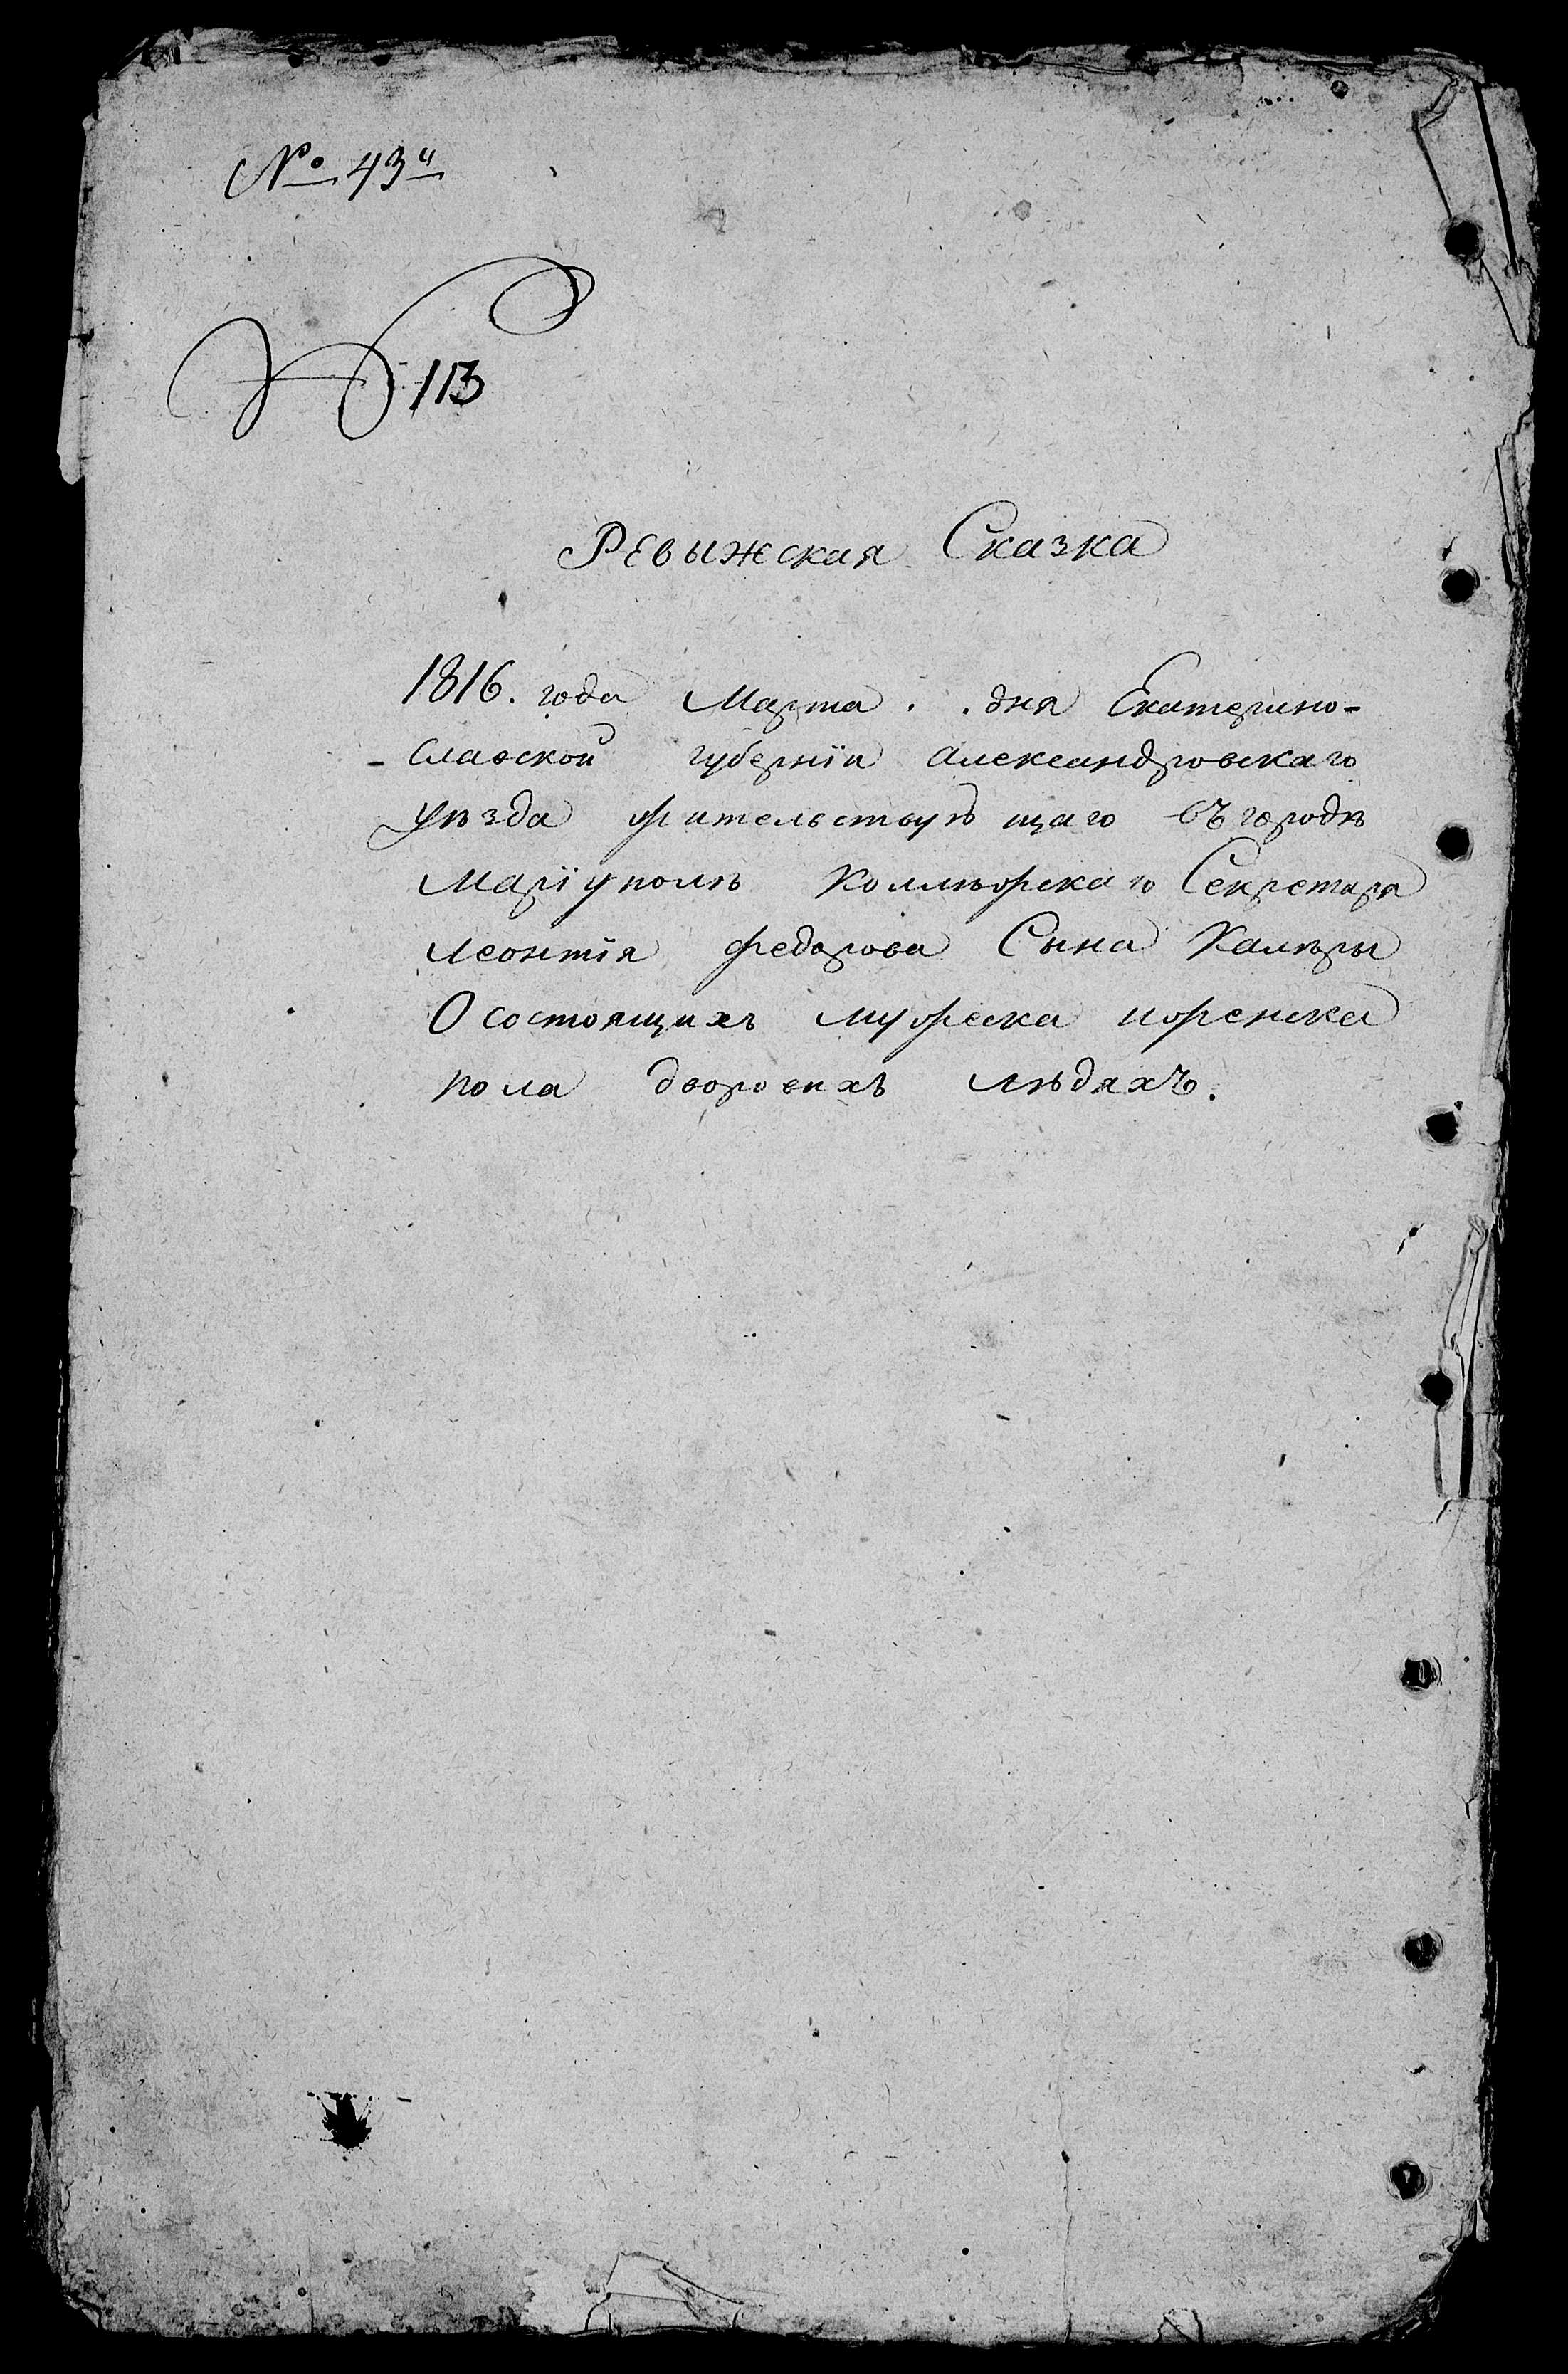 № 43й
№ 113
Ревыжская Сказка
1816. года Марта . . дня Екатерино-
- славской губернїи александровскаго
уѣзда жительствующаго въ городѣ
Марїуполѣ Коллѣжскаго Секретаря
леонтїя федорова Сына Калѣры
О состоящихъ мужеска иженска
пола дворовихъ людяхъ.